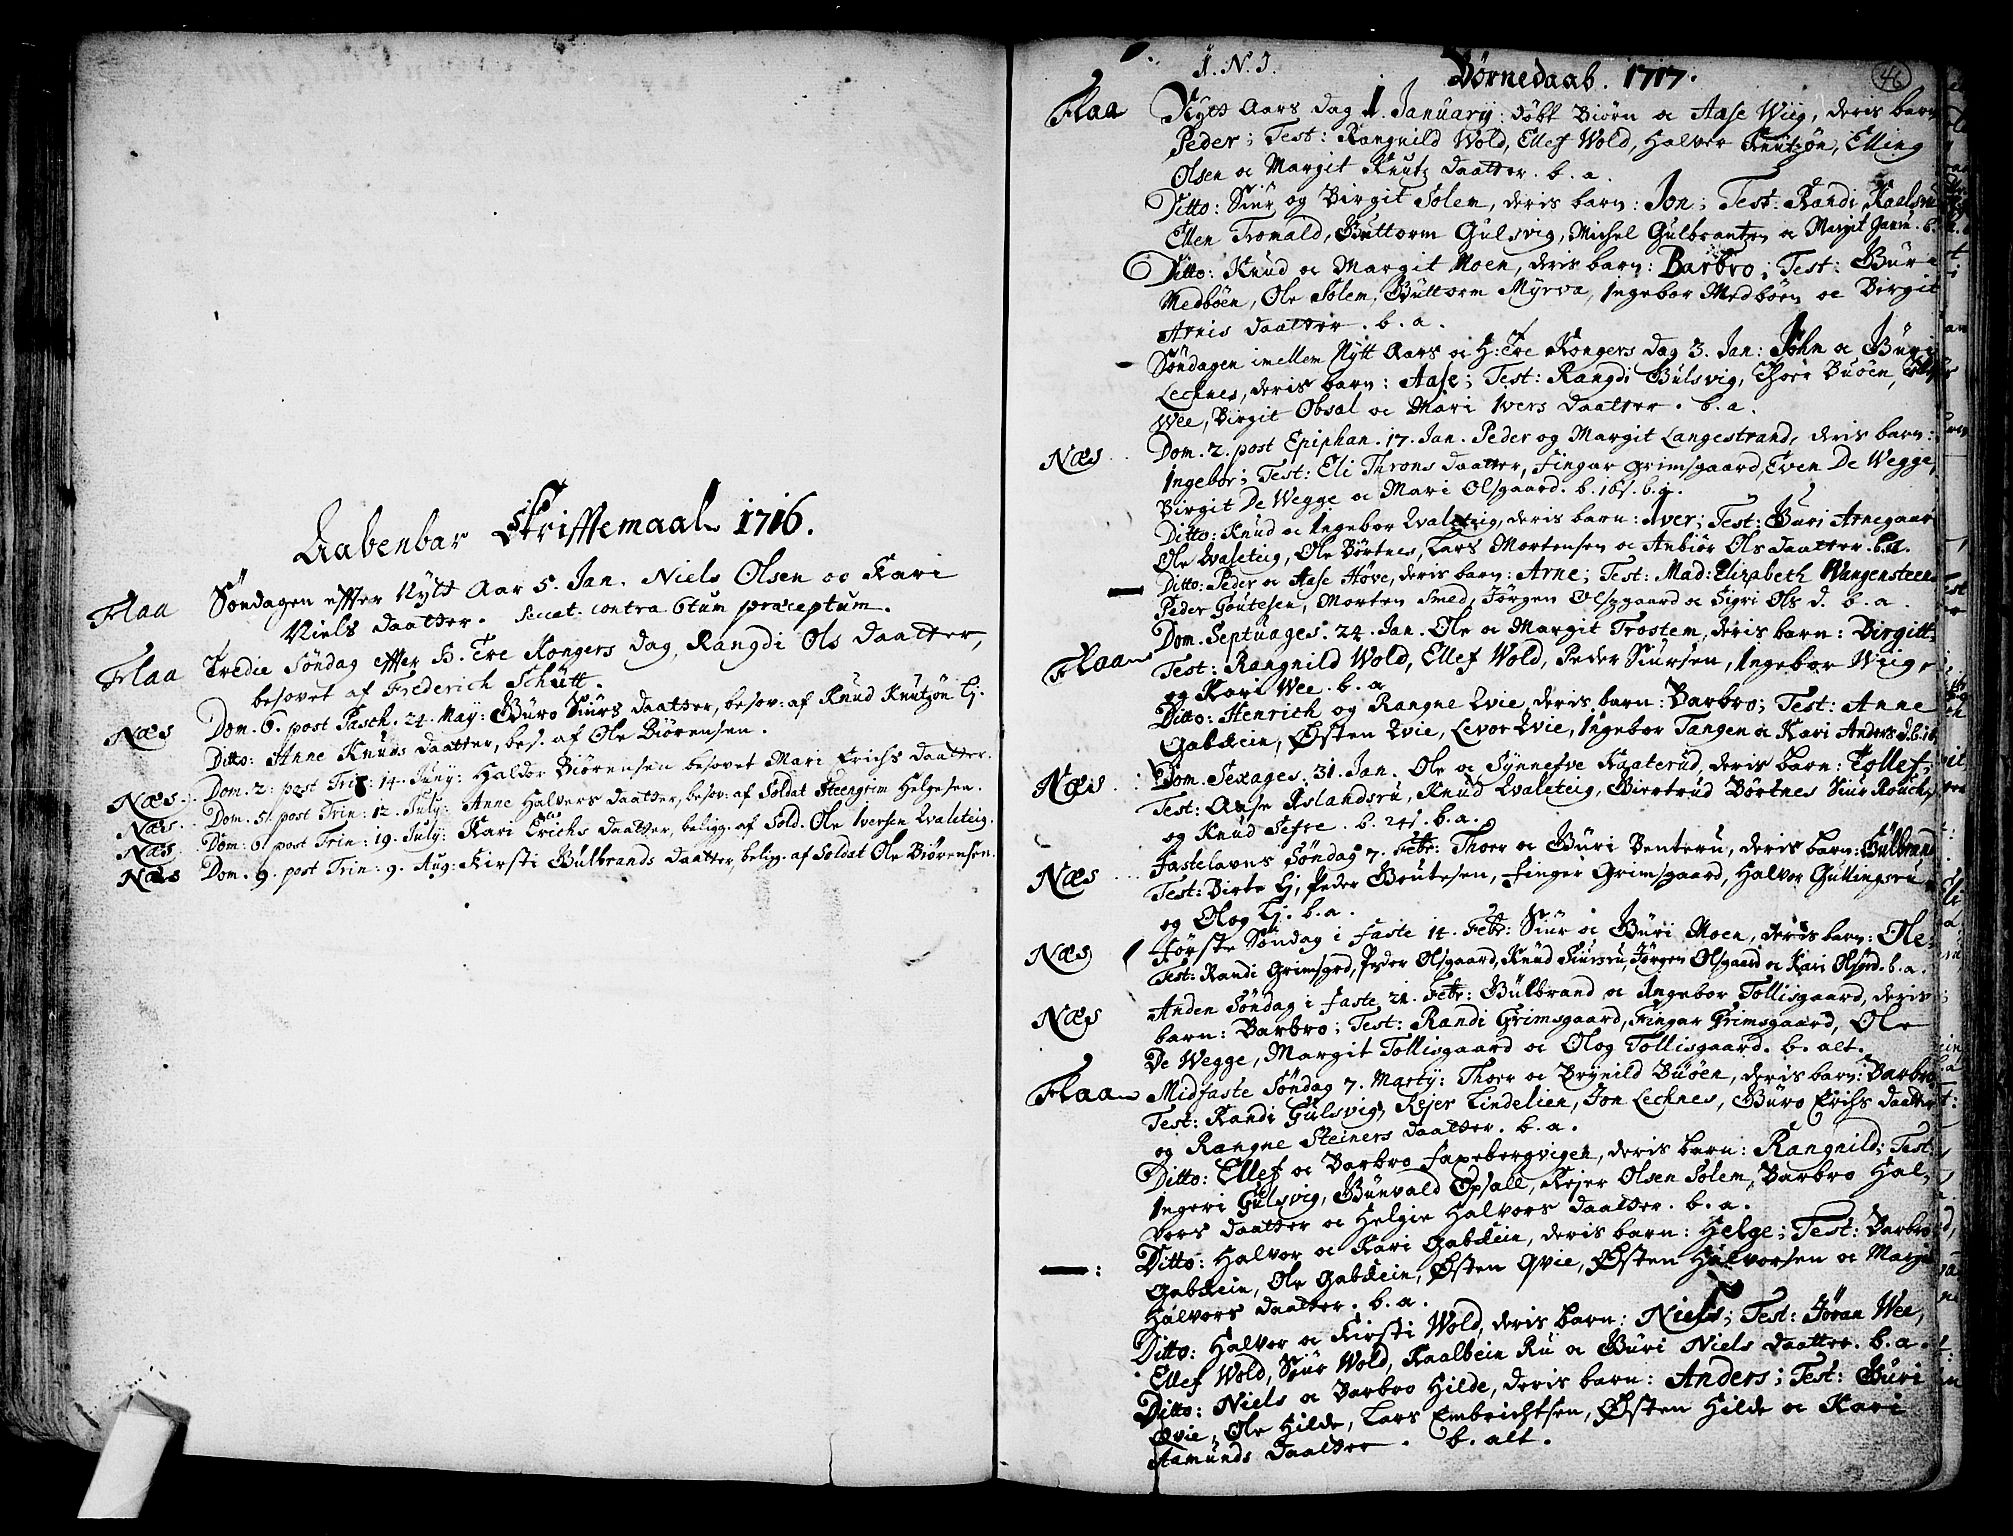 Aabenbar Skrifftemaal 1716.
Flaa Søndagen effter Nytt Aar 5. Jan. Niels Olsen oc Kari
Niels daatter. Peccat. contra 6tum præceptum.
Flaa Tredie Søndag effter H. Tre Kongers Dag, Rangdi Ols daatter,
besovet af Frederich Schütt.
Næs Dom. 6. post Pasch. 24. May: Guro Siurs daatter, besov: af Knud Knutzøn Ej.
Ditto: Anne Knuds daatter, bes. af Ole Biørensen.
Næs Dom. 2. post Tri: 14. Juny: Haldor Biørensen besovet Mari Erichs daatter.
Næs Dom. 5. post Trin: 12. July: Anne Halvers daatter, besov: af Soldat Steengrim Helgesen.
Næs Dom: 6. post Trin: 19. July: Kari Erichs daatter, beligg. af Sold. Ole Iversen Qvaleteig.
Næs Dom. 9. post Trin: 9. Aug: Kirsti Gulbrands daatter, belig. af Soldat Ole Biørensen.
I. N. J. Børnedaab. 1717. 46
Flaa Nytt Aars dag 1. January: døbt Biørn oc Aase Wiig, deris barn
Peder; Test: Rangnild Wold, Ellef Wold, Halver Knutzøn, Elling
Olsen oc Margit Knutz daatter. b. a.
Ditto: Siur og Birgit Solem, deris barn: Jon; Test: Randi Kaalsru
Ellen Tromald, Guttorm Gulsvig, Michel Gulbrantzen oc Margit
Ditto: Knud oc Margit Moen, deris barn: Barbro; Test: Guro
Medbøen, Ole Solem, Guttorm Myrva, Ingebor Medbøen oc Birgit
Arnis daatter. b. a.
Søndagen imellem Nytt Aars oc H: Tre Kongers dag 3. Jan: John oc Guri
Lechnes, deris barn: Aase; Test: Rangdi Gulsvig, Thore Buøen,
Wee, Birgit Obsal oc Mari Ivers daatter. b. a.
Næs Dom. 2. post Epiphan. 17. Jan. Peder og Margit Langestrand, deris barn:
Ingebor; Test: Eli Throns daatter, Fingar Grimsgaard, Even De Wegge,
Birgit De Wegge oc Mari Olsgaard. b. 16s. b. j.
Ditto: Knud oc Ingebor Qvaleteig, deris barn: Iver; Test: Guri Arnegaar
Ole Qvaleteig, Ole Børtnes, Lars Mortensen oc Anbiør Olsdaatter. b. a.
Ditto: Peder oc Aase Høve, deris barn: Arne; Test: Mad: Elizabeth Wangensteen
Peder Goutesen, Morten Smed, Jørgen Olsgaard oc Sigri Ols d. b. a.
Flaa Dom. Septuages. 24. Jan. Ole oc Margit Trostem, deris barn: Birgitt.
Test: Rangnild Wold, Ellef Wold, Peder Siursen, Ingebor Wiig
og Kari Wee. b. a
Ditto: Henrich og Rangne Qvie, deris barn: Barbro; Test: Anne
Gabdein, Østen Qvie, Levor Qvie, Ingebor Tangen oc Kari Anders d. b. 16
Næs Dom. Sexages. 31. Jan. Ole oc Synnefve Kaaterud, deris barn: Tollef,
Test: Aase Aslandsru, Knud Qvaleteig, Giertrud Børtnes Siur Rouch,
og Knud Sefre. b. 24s. b. a.
Næs Fastelavns Søndag 7. Febr: Thoer oc Guri Benteru, deris barn: Gulbrand
Test: Birte Ej, Peder Goutesen, Finger Grimsgaard, Halvor Gullingsru
og Olog Ej. b. a.
Næs Første Søndag i Faste 14. Febr: Siur oc Guri Moen, deris barn: Ole:
Test: Randi Grimsgrd, Peder Olsgaard, Knud Siursru, Jørgen Olsgaard oc Kari Olsgrd. b. a.
Næs Anden Søndag i Faste 21. Febr: Gulbrand oc Ingebor Tollisgaard, deris
barn: Barbro; Test: Randi Grimsgaard, Fingar Grimsgaard, Ole
De Wegge, Margit Tollisgaard oc Olog Tollisgaard. b. alt.
Flaa Midfaste Søndag 7. Marty: Thoer oc Brynild Buøen, deris barn: Barbro
Test: Randi Gulsvig, Rejer Lindelien, Jon Lechnes, Guro Erichs daatter
og Rangne Steiners daatter. b. a.
Ditto: Ellef oc Barbro Faxebergvigen, deris barn: Rangnild; Test:
Ingeri Gulsvig, Gunvald Opsall, Rejer Olsen Solem, Barbro Hal,
vors daatter oc Helgie Halvors daatter. b. a.
Ditto: Halvor oc Kari Gabdein, deris barn: Helge; Test: Barbro
Gabdein, Ole Gabdein, Østen Qvie, Østen Halvorsen oc Margit
Halvors daatter. b. a.
Ditto: Halvor oc Kirsti Wold, deris barn: Niels; Test: Jøran Wee,
Ellef Wold, Siur Wold, Kaalbein Ru oc Guri Niels daatter. b. a.
Ditto: Niels oc Barbro Hilde, deris barn: Anders; Test: Guri
Qvie, Ole Hilde, Lars Embrichtsen, Østen Hilde oc Kari
Aamunds daatter. b. alt.